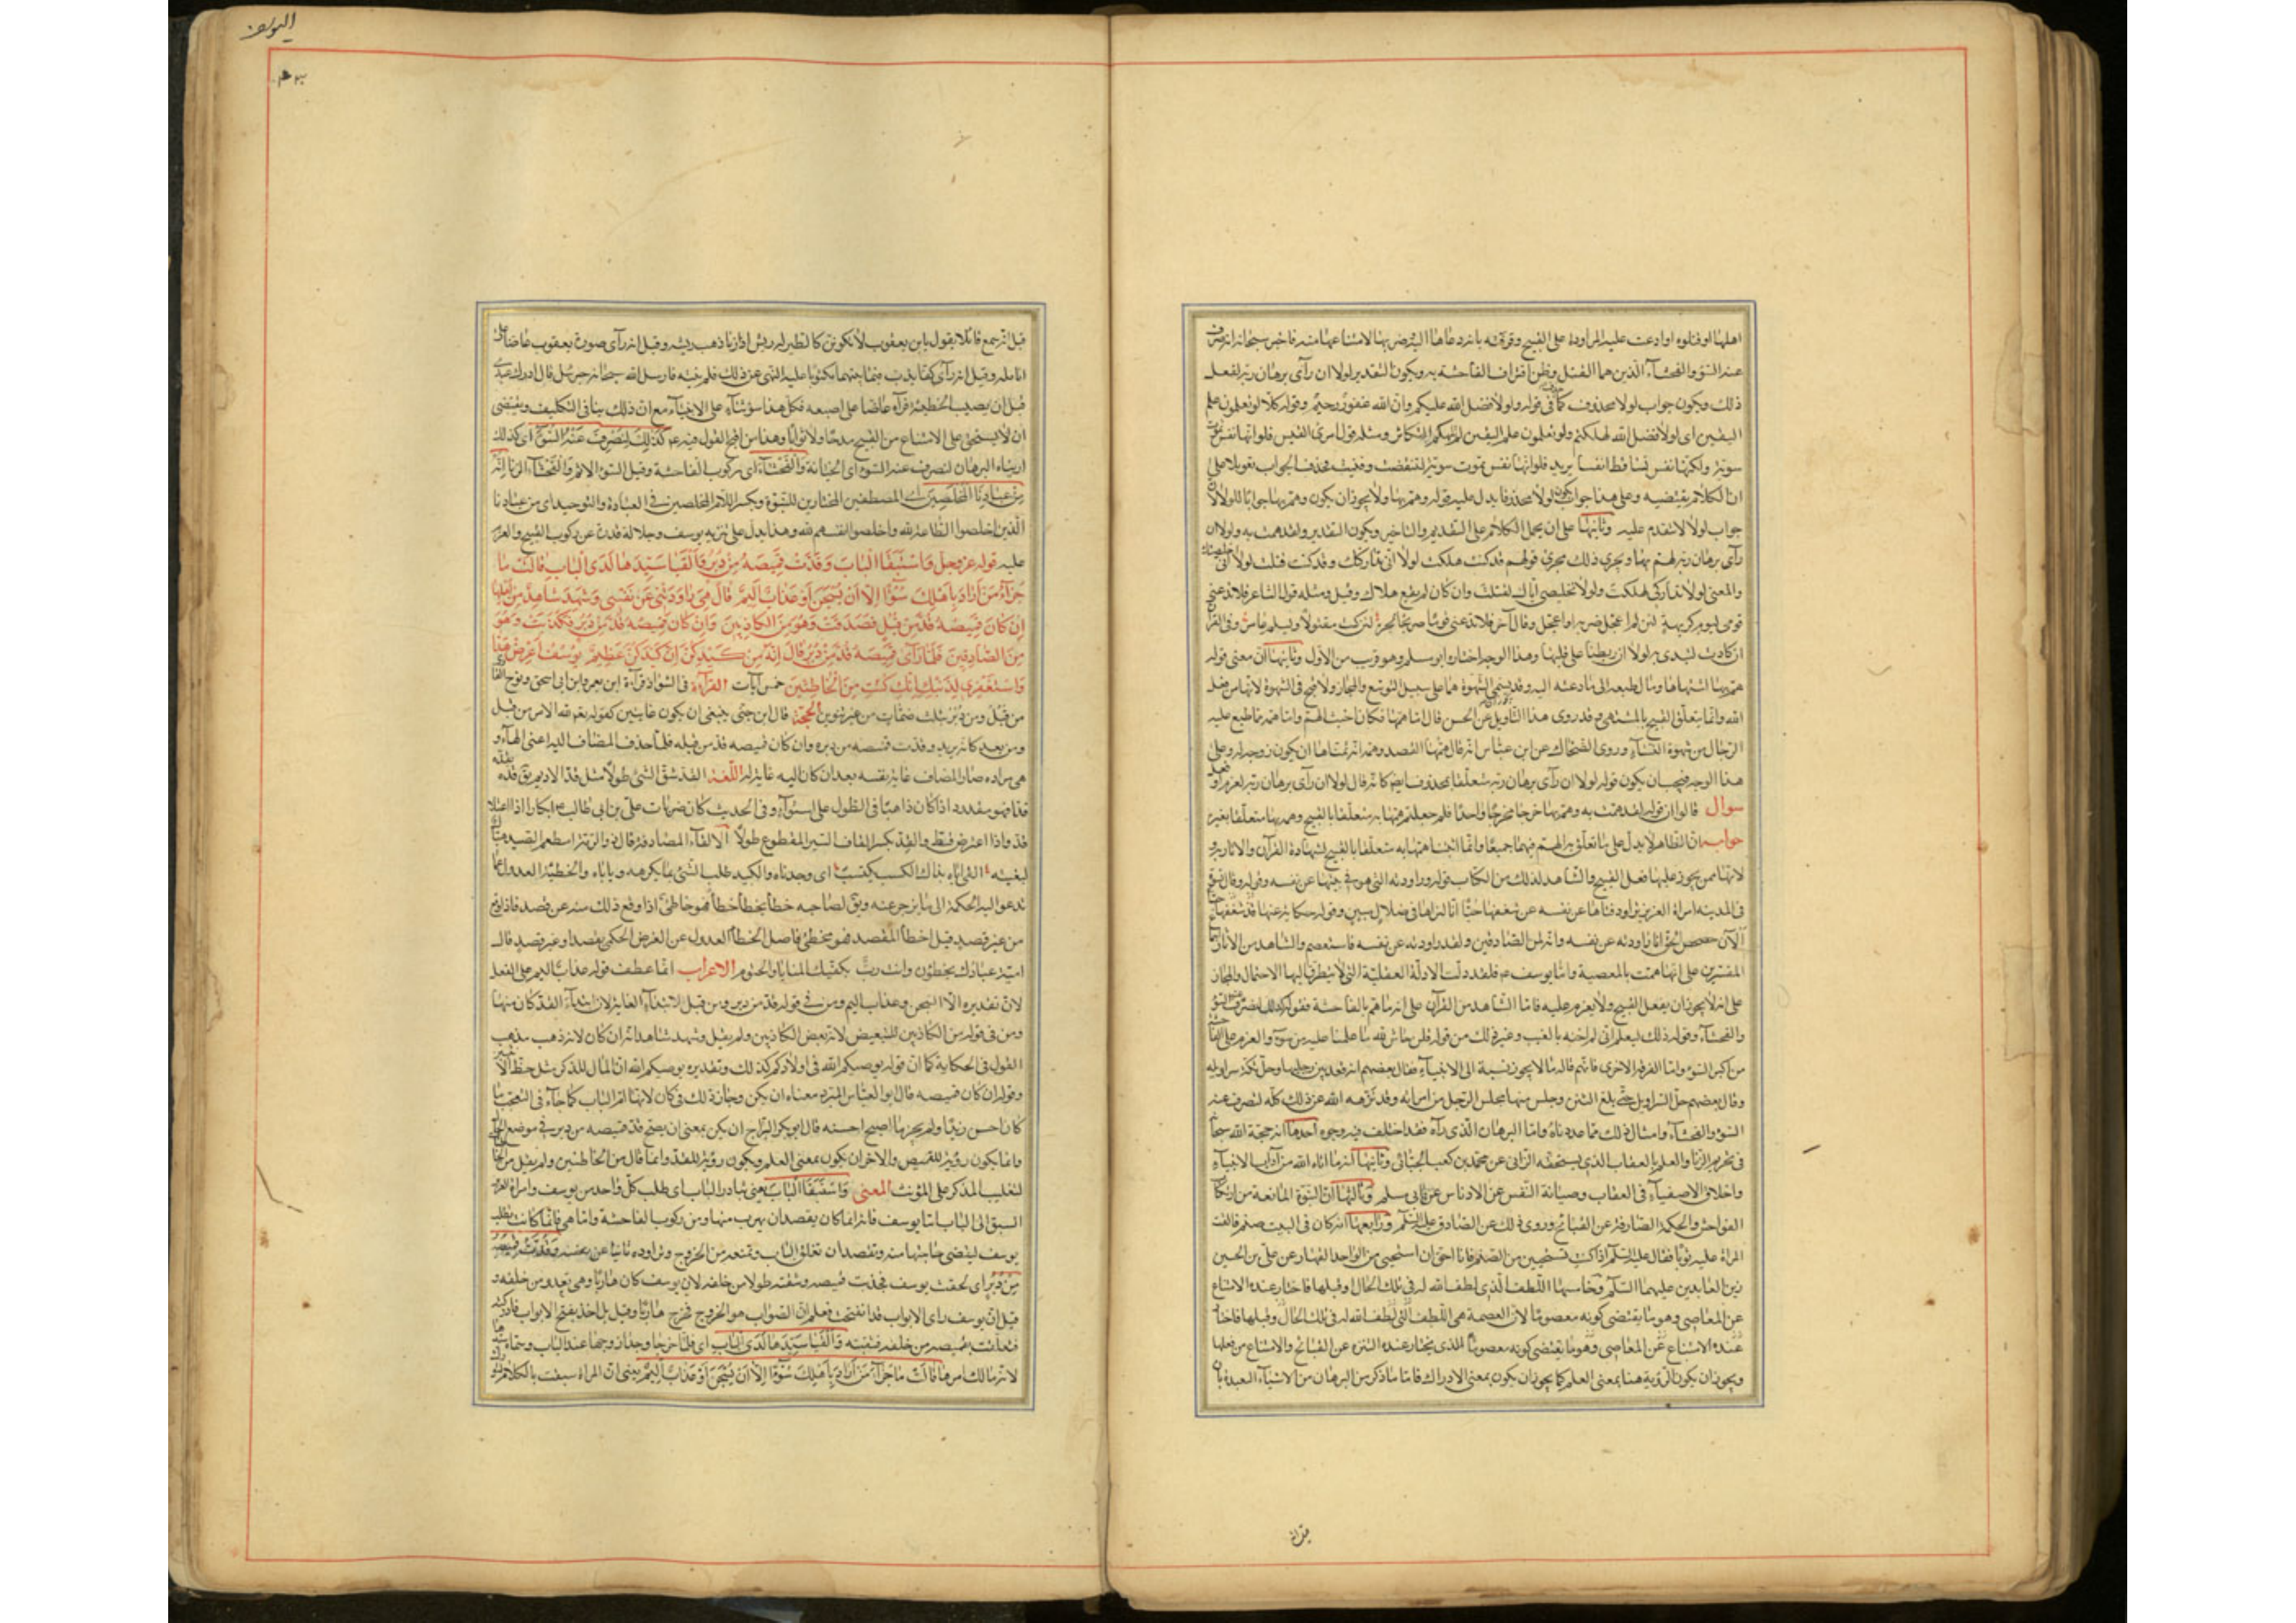 اهلها او قتلوه او ادعت عليه المراودة على القبيح وقرفته بانه دعاها اليه وضربها لامتناعها منه فاخبر سبحانه انه صرف
عنه السوء والفحشاء الذين هما القتل وظن اقتراف الفاحشة به ويكون التقدير لولا ان رآى برهان ربه لفعل
ذلك ويكون جواب لولا محذوف كما فى قوله ولولا فضل الله عليكم وان الله غفور رحيم وقوله كلا لو تعلمون علم
اليقين اى لولا فضل الله لهلكتم ولو تعلمون علم اليقين لم يلهكم التكاثر ومثله قول امرئ القيس فلو انها نفس تموت
سوية ولكنها نفس تساقط انفسا يريد فلو انها نفس تموت سوية لتنقضت وفنيت فحذف الجواب تعويلا على
ان الكلام يقتضيه وعلى هذا جواب لولا محذوفا يدل عليه قوله وهم بها ولا يجوز ان يكون وهم بها جوابا للولا لان
جواب لولا لا يتقدم عليه وثانيها على ان يحمل الكلام على التقديم والتاخير ويكون التقدير ولقد همت به ولولا ان
رآى برهان ربه لهم بها ويجرى ذلك مجرى قولهم قد كنت هلكت لولا انى تداركتك وقد كنت قتلت لولا انى خلصتك
والمعنى لولا تداركى لهلكت ولولا تخليصى اياك لقتلت وان كان لم يقع هلاك وقتل ومثله قول الشاعر فلا تدعنى
قومى ليوم كريهة لئن لم اعجل ضربة او اعجل وقال آخر فلا تدعنى قومى صريحا لحرة لئن كنت مقتولا ويسلم عامر وفى القرآن
ان كادت لتبدى به لولا ان ربطنا على قلبها وهذا الوجه اختاره ابو مسلم وهو قريب من الاول وثالثها ان معنى قوله
هم بها اشتهاها ومال طبعه الى ما دعته اليه وقد يسمى الشهوة هما على سبيل التوسع والمجاز ولا قبح فى الشهوة لانها من فعل
الله وانما يتعلق القبيح بالمشتهى وقد روى هذا التاويل عن الحسن قال اما همها فكان اخبث الهم واما همه فما طبع عليه
الرجال من شهوة النساء وروى الضحاك عن ابن عباس انه قال همها القصد وهمه انه تمناها ان يكون زوجة له وعلى
هذا الوجه فيجب ان يكون قوله لولا ان رآى برهان ربه متعلقا بمحذوف ايضا كانه قال لولا ان رآى برهان ربه لعزم او فعل
سوال قالوا ان قوله ولقد همت به وهم بها خرجا مخرجا واحدا فلم جعلتم همها به متعلقا بالقبيح وهمه بها متعلقا بغيره
جواب ان الظاهر لا يدل على ما تعلق به الهم فيهما جميعا وانما اثبتنا همها به متعلقا بالقبيح لشهادة القرآن والاثار به و
لانها ممن يجوز عليها فعل القبيح والشاهد لذلك من الكتاب قوله وراودته التى هو فى بيتها عن نفسه وقوله وقال نسوة
فى المدينة امراة العزيز تراود فتاها عن نفسه قد شغفها حبا انا لنراها فى ضلال مبين وقوله حكاية عنها
الآن حصحص الحق انا راودته عن نفسه وانه لمن الصادقين ولقد راودته عن نفسه فاستعصم والشاهد من الآثار اجماع
المفسرين على انها همت بالمعصية واما يوسف ع فلقد دلت الادلة العقلية التى لا يتطرق اليها الاحتمال والمجاز
على انه لا يجوز ان يفعل القبيح ولا يعزم عليه فاما الشاهد من القرآن على انه ما هم بالفاحشة فقوله كذلك لنصرف عنه السوء
والفحشاء وقوله ذلك ليعلم انى لم اخنه بالغيب وغير ذلك من قوله قلن حاش لله ما علمنا عليه من سوء والعزم على الفاحشة
من اكبر السوء واما الفرقة الاخرى فانهم قالوا ما لا يجوز نسبة الى الانبياء فقال بعضهم انه قعد بين رجليها وحل تكة سراويله
وقال بعضهم حل السراويل حتى بلغ الثنن وجلس منها مجلس الرجل من امراته وقد نزهه الله عن ذلك كله لنصرف عنه
السوء والفحشاء وامثال ذلك مما عددناه واما البرهان الذى رآه فقد اختلف فيه وجوه احدها انه حجة الله سبحانه
فى تحريم الزنا والعلم بالعقاب الذى يستحقه الزانى عن محمد بن كعب والجبائى وثانيها انه ما اتاه الله من آداب الانبياء
واخلاق الاصفياء فى العفاف وصيانة النفس عن الادناس عن ابى مسلم وثالثها ان النبوة المانعة من ارتكاب
الفواحش والحكمة الصارفة عن القبائح وروى ذلك عن الصادق عليه السلم ورابعها انه كان فى البيت صنم فالقت
المراة عليه ثوبا فقال عليه السلم اذا كنت تستحيين من الصنم فانا احق ان استحيى من الواحد القهار عن على بن الحسين
زين العابدين عليهما السلم وخامسها اللطف الذى لطف الله له فى تلك الحال او قبلها فاختار عنده الامتناع
عن المعاصى وهو ما يقتضى كونه معصوما لان العصمة هى اللطف التى لطف الله له فى تلك الحال وقبلها فاختار
عنده الامتناع عن المعاصى وهو ما يقتضى كونه معصوما الذى يختار عنده التنزه عن القبائح والامتناع من فعلها
ويجوز ان يكون الرؤية هنا بمعنى العلم كما يجوز ان يكون بمعنى الادراك فاما ما ذكر من البرهان من الاشياء البعيدة بان
قيل انه
اليوسف
قيل انه سمع قائلا يقول يا بن يعقوب لا تكونن كالطير له ريش اذا زنا ذهب ريشه وقيل انه رآى صورة يعقوب عاضا على
انامله وقيل انه رآى كفا بدت فيما بينهما مكتوبا عليه النهى عن ذلك فلم ينته فارسل الله سبحانه جبرئيل قال ادرك عبدى
قبل ان يصيب الخطيئة فرآه عاضا على اصبعه فكل هذا سوء ثناء على الانبياء مع ان ذلك ينافى التكليف ويقتضى
ان لا يستحق على الامتناع من القبيح مدحا ولا ثوابا وهذا من اقبح القول فيه ع كذلك لنصرف عنه السوء اى كذلك
اريناه البرهان لنصرف عنه السوء اى الخيانة والفحشاء اى ركوب الفاحشة وقيل السوء الاثم والفحشاء الزنا انه
من عبادنا المخلصين اى المصطفين المختارين للنبوة وبكسر اللام المخلصين فى العبادة والتوحيد اى من عبادنا
الذين اخلصوا الطاعة لله واخلصوا انفسهم لله وهذا يدل على تنزيه يوسف وجلالة قدره عن ركوب القبيح والعزم
عليه قوله عز وجل واستبقا الباب وقدت قميصه من دبر والفيا سيدها لدى الباب قالت ما
جزاء من اراد باهلك سوءا الا ان يسجن او عذاب اليم قال هى راودتنى عن نفسى وشهد شاهد من اهلها
ان كان قميصه قد من قبل فصدقت وهو من الكاذبين وان كان قميصه قد من دبر فكذبت وهو
من الصادقين فلما رآى قميصه قد من دبر قال انه من كيدكن ان كيدكن عظيم يوسف اعرض عن هذا
واستغفرى لذنبك انك كنت من الخاطئين خمس آيات القراءة فى الشواذ قراءة ابن يعمر وابن ابى اسحق ونوح القارى
من قبل ومن دبر بثلث ضمات من غير تنوين الحجة قال ابن جنى ينبغى ان يكون غايتين كقوله تعالى لله الامر من قبل
ومن بعد كانه يريد وقدت قميصه من دبره وان كان قميصه قد من قبله فلما حذف المضاف اليه اعنى الهاء و
هى مراده صار المضاف غاية نفسه بعد ان كان اليه غاية له اللغة القد شق الشئ طولا مثل قد الاديم يق قده يقده
قدا فهو مقدود اذا كان ذاهبا فى الطول على استواء وفى الحديث كان ضربات على بن ابى طالب ع ابكارا اذا اعتلا
قد واذا اعترض قط والقد بكسر القاف السير المقطوع طولا الالفاء المصادفة قال ذو الرمة
لبغيته الفى اباه بذاك الكسب يكتسب اى وجدناه والكيد طلب الشئ بما يكرهه وياباه والخطيئة العدول عما
تدعو اليه الحكمة الى ما يزجر عنه ويق لصاحبه خطئ يخطأ خطأ فهو خاطئ اذا وقع ذلك منه عن قصد فاذا وقع
من غير قصد قيل اخطأ المقصد فهو مخطئ فاصل الخطأ العدول عن الغرض الحكمى بقصد او غير قصد قال
امية عبادك يخطئون وانت رب بكفيك المنايا والحتوم الاعراب انما عطف قوله عذاب اليم على الفعل
لان تقديره الا السجن وعذاب اليم ومن فى قوله قد من دبر ومن قبل لابتداء الغاية لان ابتداء القد كان منها
ومن فى قوله من الكاذبين للتبعيض لانه بعض الكاذبين ولم يقل وشهد شاهد انه ان كان لانه ذهب مذهب
القول فى الحكاية كما ان قوله يوصيكم الله فى اولادكم كذلك وتقديره يوصيكم الله ان المال للذكر مثل حظ الانثيين
وقوله ان كان قميصه قال ابو العباس المبرد معناه ان يكن وجاز ذلك فى كان لانها ام الباب كما جاء فى التعجب ما
كان احسن زيدا ولم يجز ما اصبح احسنه قال ابو بكر السراج ان يكن بمعنى ان يصح قد قميصه من دبر فى موضع الحال
وانما يكون رؤية للقميص والاخر ان يكون بمعنى العلم ويكون رؤية للقد وانما قال من الخاطئين ولم يقل من الخاطئات
لتغليب المذكر على المؤنث المعنى واستبقا الباب يعنى تبادرا الباب اى طلب كل واحد من يوسف وامراة العزيز
السبق الى الباب اما يوسف فانه انما كان يقصد ان يهرب منها ومن ركوب الفاحشة واما هى فانما كانت تطلب
يوسف ليقضى حاجتها منه وتقصد ان تغلق الباب وتمنعه من الخروج وتراوده ثانيا عن نفسه وقدت قميصه
من دبر اى لحقت يوسف فجذبت قميصه وشقته طولا من خلفه لان يوسف كان هاربا وهى تعدو من خلفه و
قيل ان يوسف راى الابواب قد انفتحت فعلم ان الصواب هو الخروج فخرج هاربا وقيل بل اخذ يفتح الابواب فادركته
فتعلقت بقميصه من خلفه فشقته والفيا سيدها لدى الباب اى فلما خرجا وجدا زوجها عند الباب وسماه سيدها
لانه مالك امرها قالت ما جزاء من اراد باهلك سوءا الا ان يسجن او عذاب اليم يعنى ان المراة سبقت بالكلام